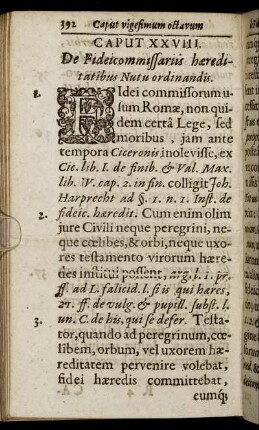 392 Caput vigesimum octavum
CAPUT XXVIII.
De Fideicommissariis hæredi-
tatibus Nutu ordinandis.
1. FIdei commissorum u-
sum Romæ, non qui-
dem certâ Lege, sed
moribus, jam ante
tempora Ciceronis inolevisse, ex
Cic. lib. I. de finib. & Val. Max.
lib. IV. cap. 2. in fin. colligit Joh.
Harprecht ad §. 1. n. 1. Inst. de
2. fideic. hæredit. Cum enim olim
jure Civili neque peregrini, ne-
que cœlibes, & orbi, neque uxo-
res testamento virorum hære-
des institui possent, arg. l. 1. pr.
ff. ad L. falicid. l. si is qui hæres,
21. ff. de vulg. & pupill. subst. l.
un. C. de his, qui se defer. Testa-
3. tor, quando ad peregrinum, cœ-
libem, orbum, vel uxorem hæ-
reditatem pervenire volebat,
fidei hæredis committebat,
eumq́;